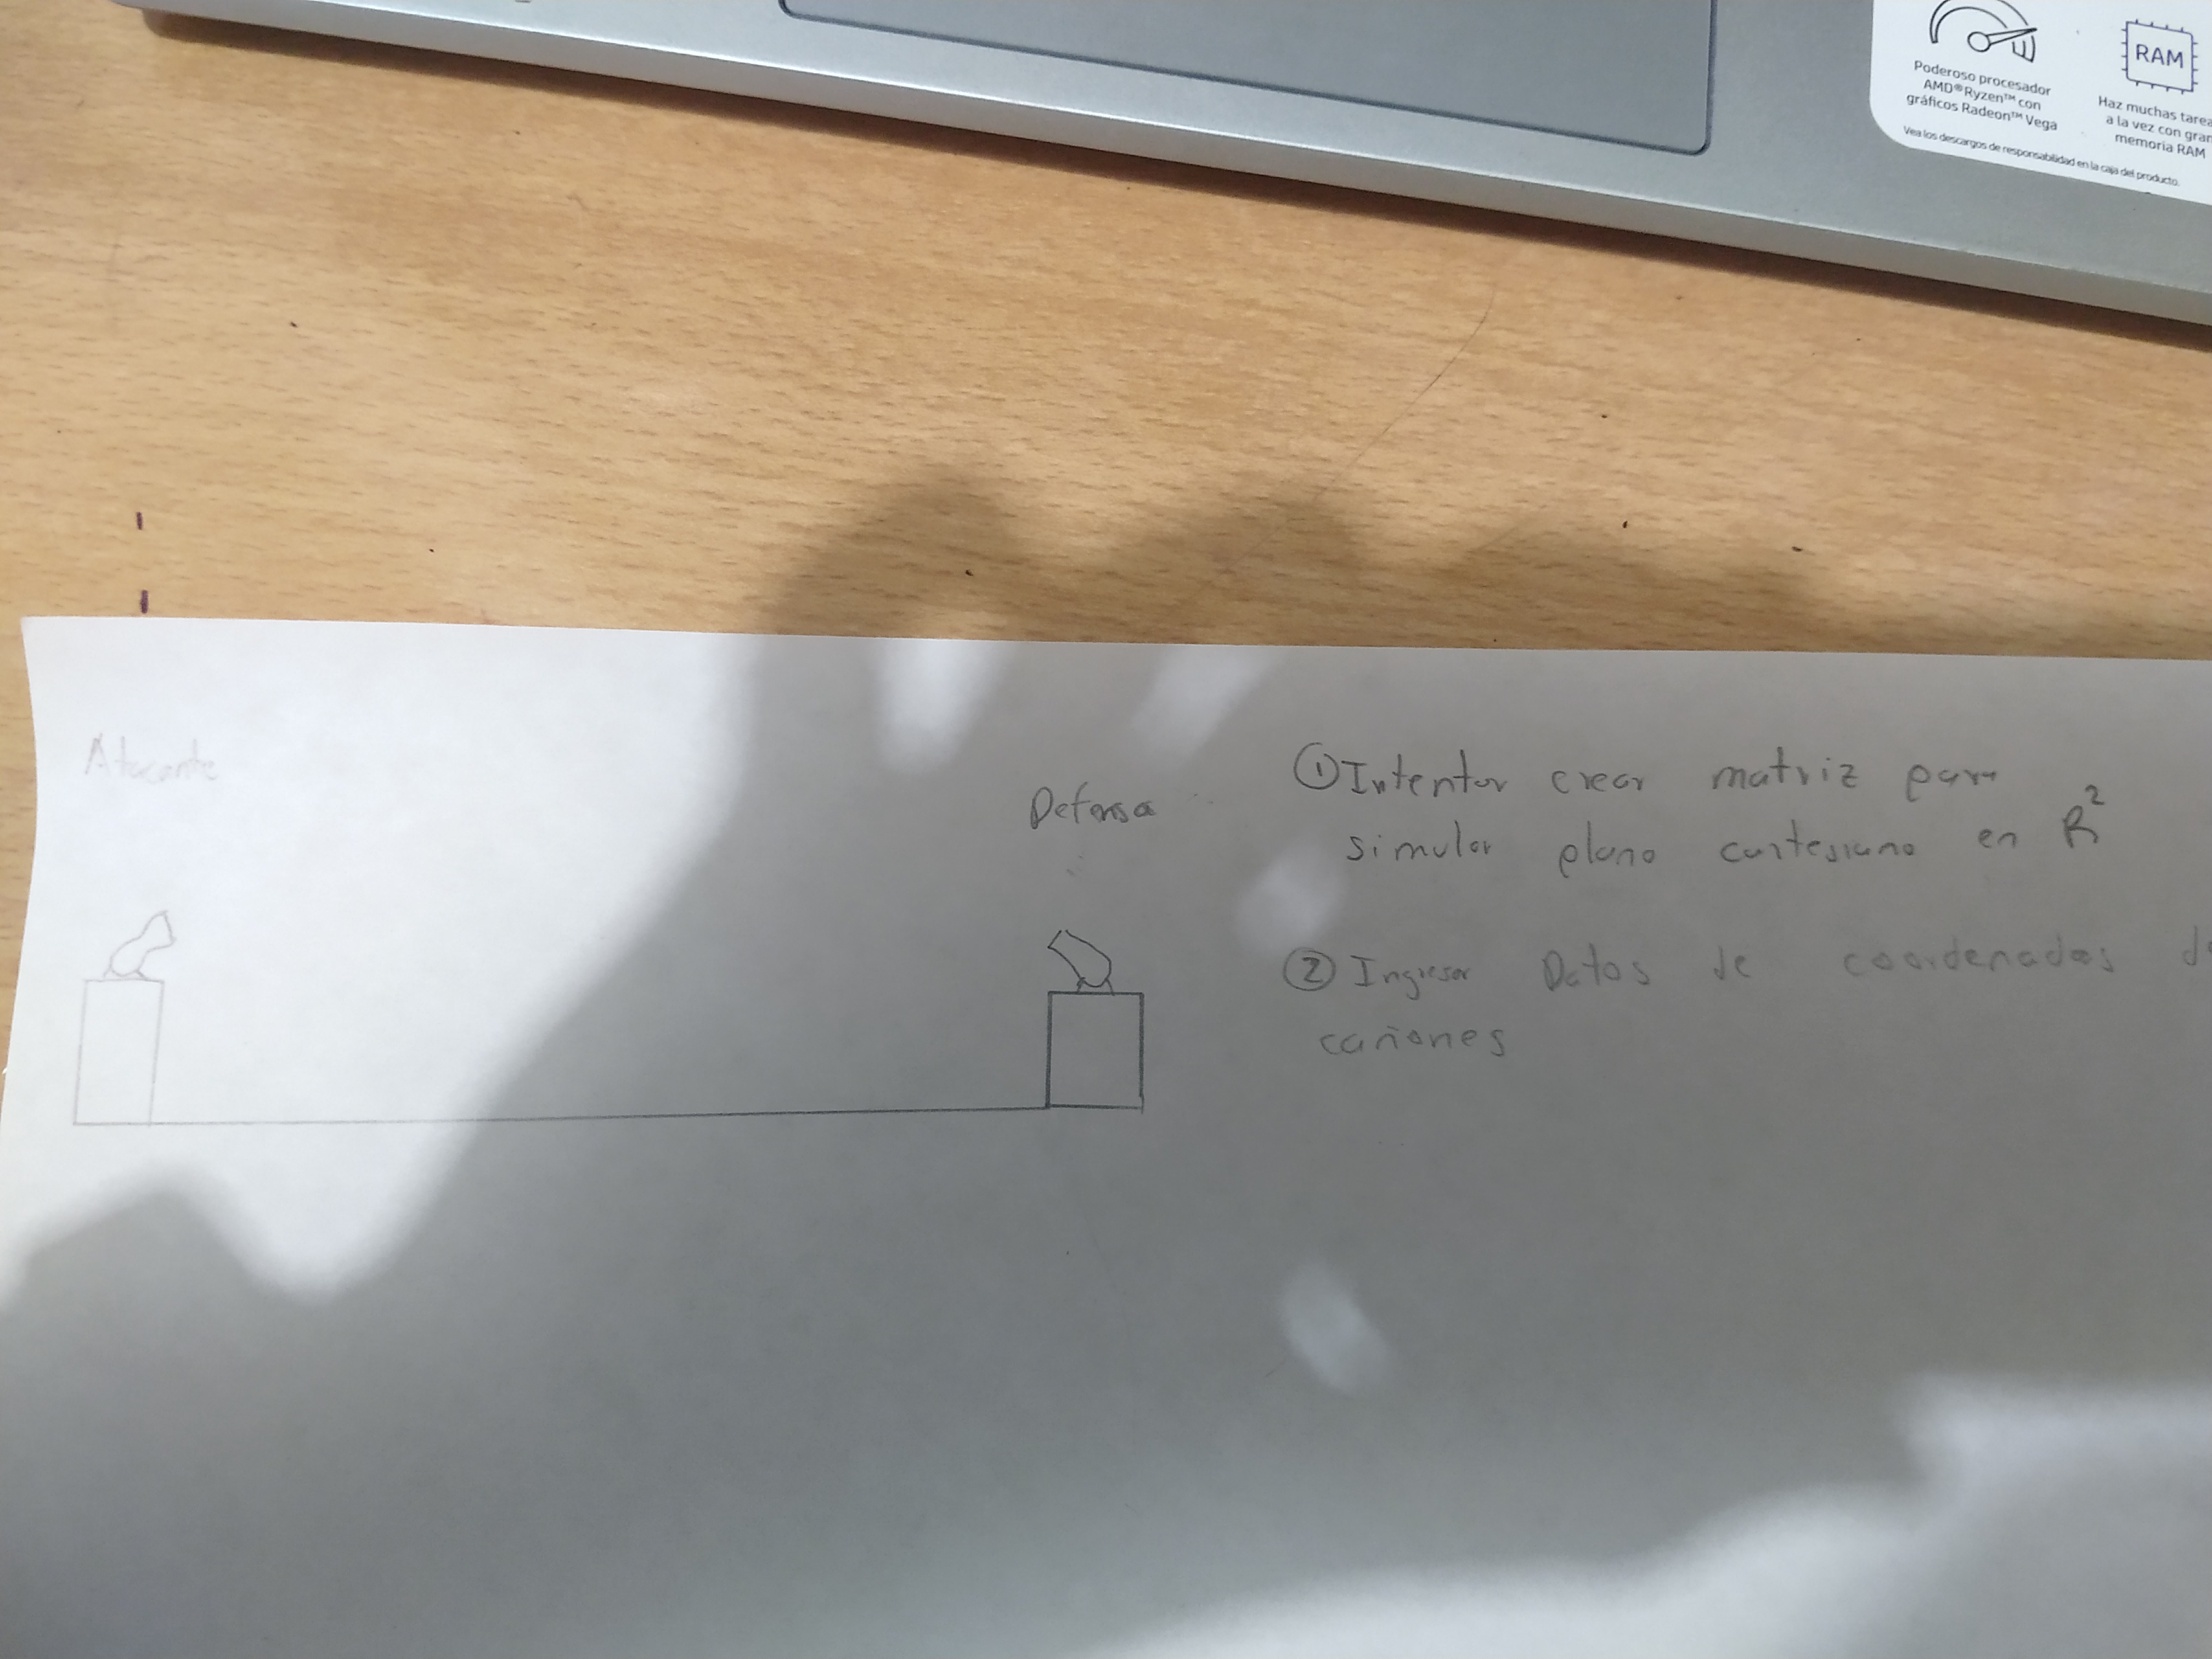 Poderoso procesador
AMD®Ryzen™ con
gráficos Radeon™ Vega
RAM
Haz muchas tarea
a la vez con gran
memoria RAM
Vea los descargos de responsabilidad en la caja del producto.
Atacante
Defensa
① Intentar crear matriz para
simular plano cartesiano en R²
② Ingresar Datos de coordenadas de
cañones